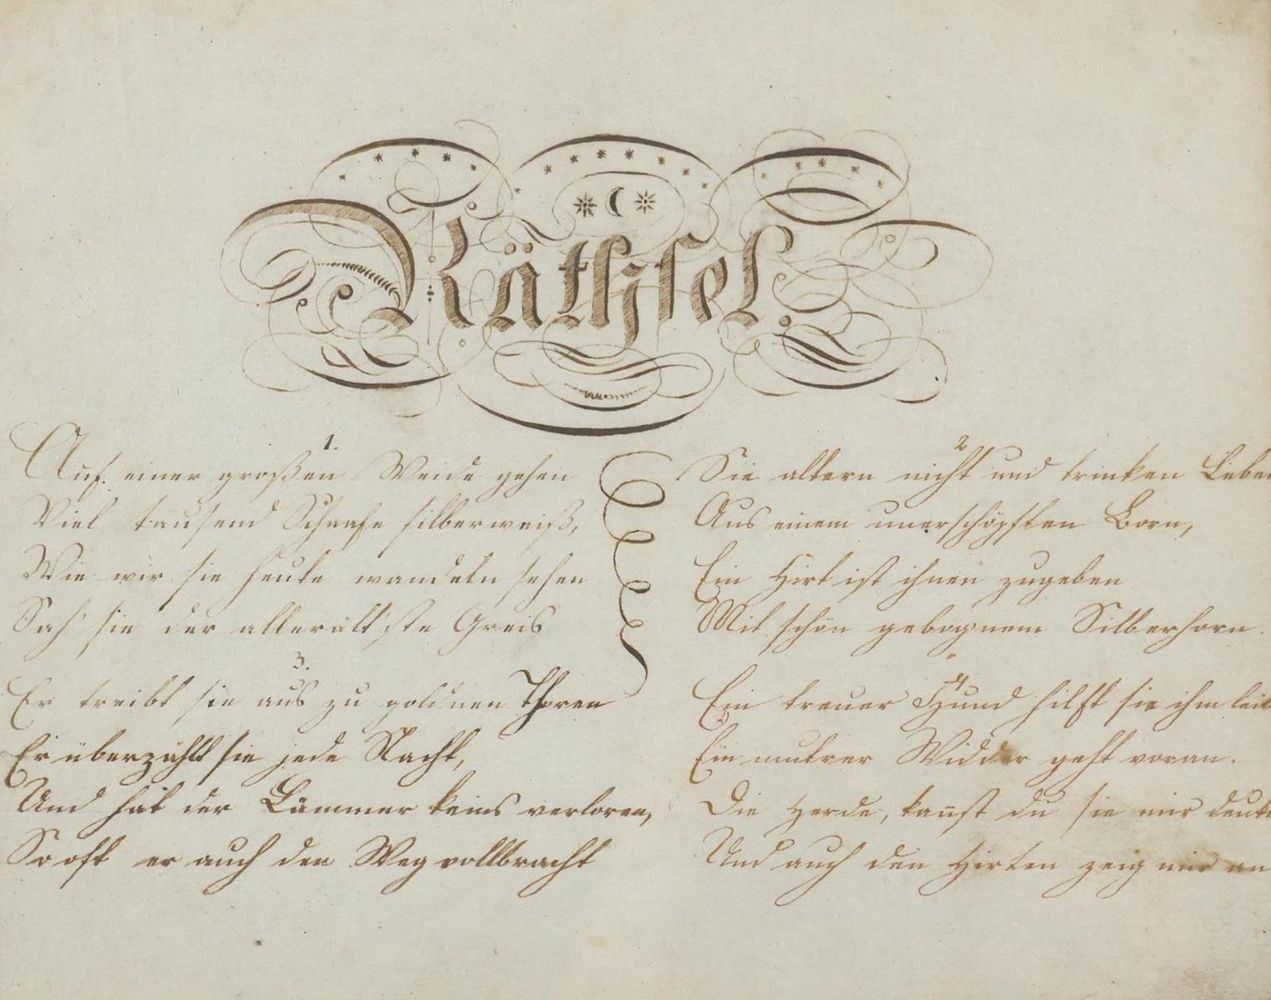 Räthsel.
1.
Auf einer großen Weide gehen
Viel tausend Schaafe silberweiß,
Wie wir sie heute wandeln sehen
Sah sie der allerält'ste Greis
2
Sie altern nicht und trinken Leben
Aus einem unerschöpften Born,
Ein Hirt ist ihnen zugeben
Mit schön gebognem Silberhorn.
3.
Er treibt sie aus zu goldnen Thoren
Er überzählt sie jede Nacht,
Und hat der Lämmer keins verloren,
So oft er auch den Weg vollbracht
4
Ein treuer Hund hilft sie ihm leit
Ein muntrer Widder geht voran.
Die Herde, kannst du sie mir deute
Und auch den Hirten zeig mir an